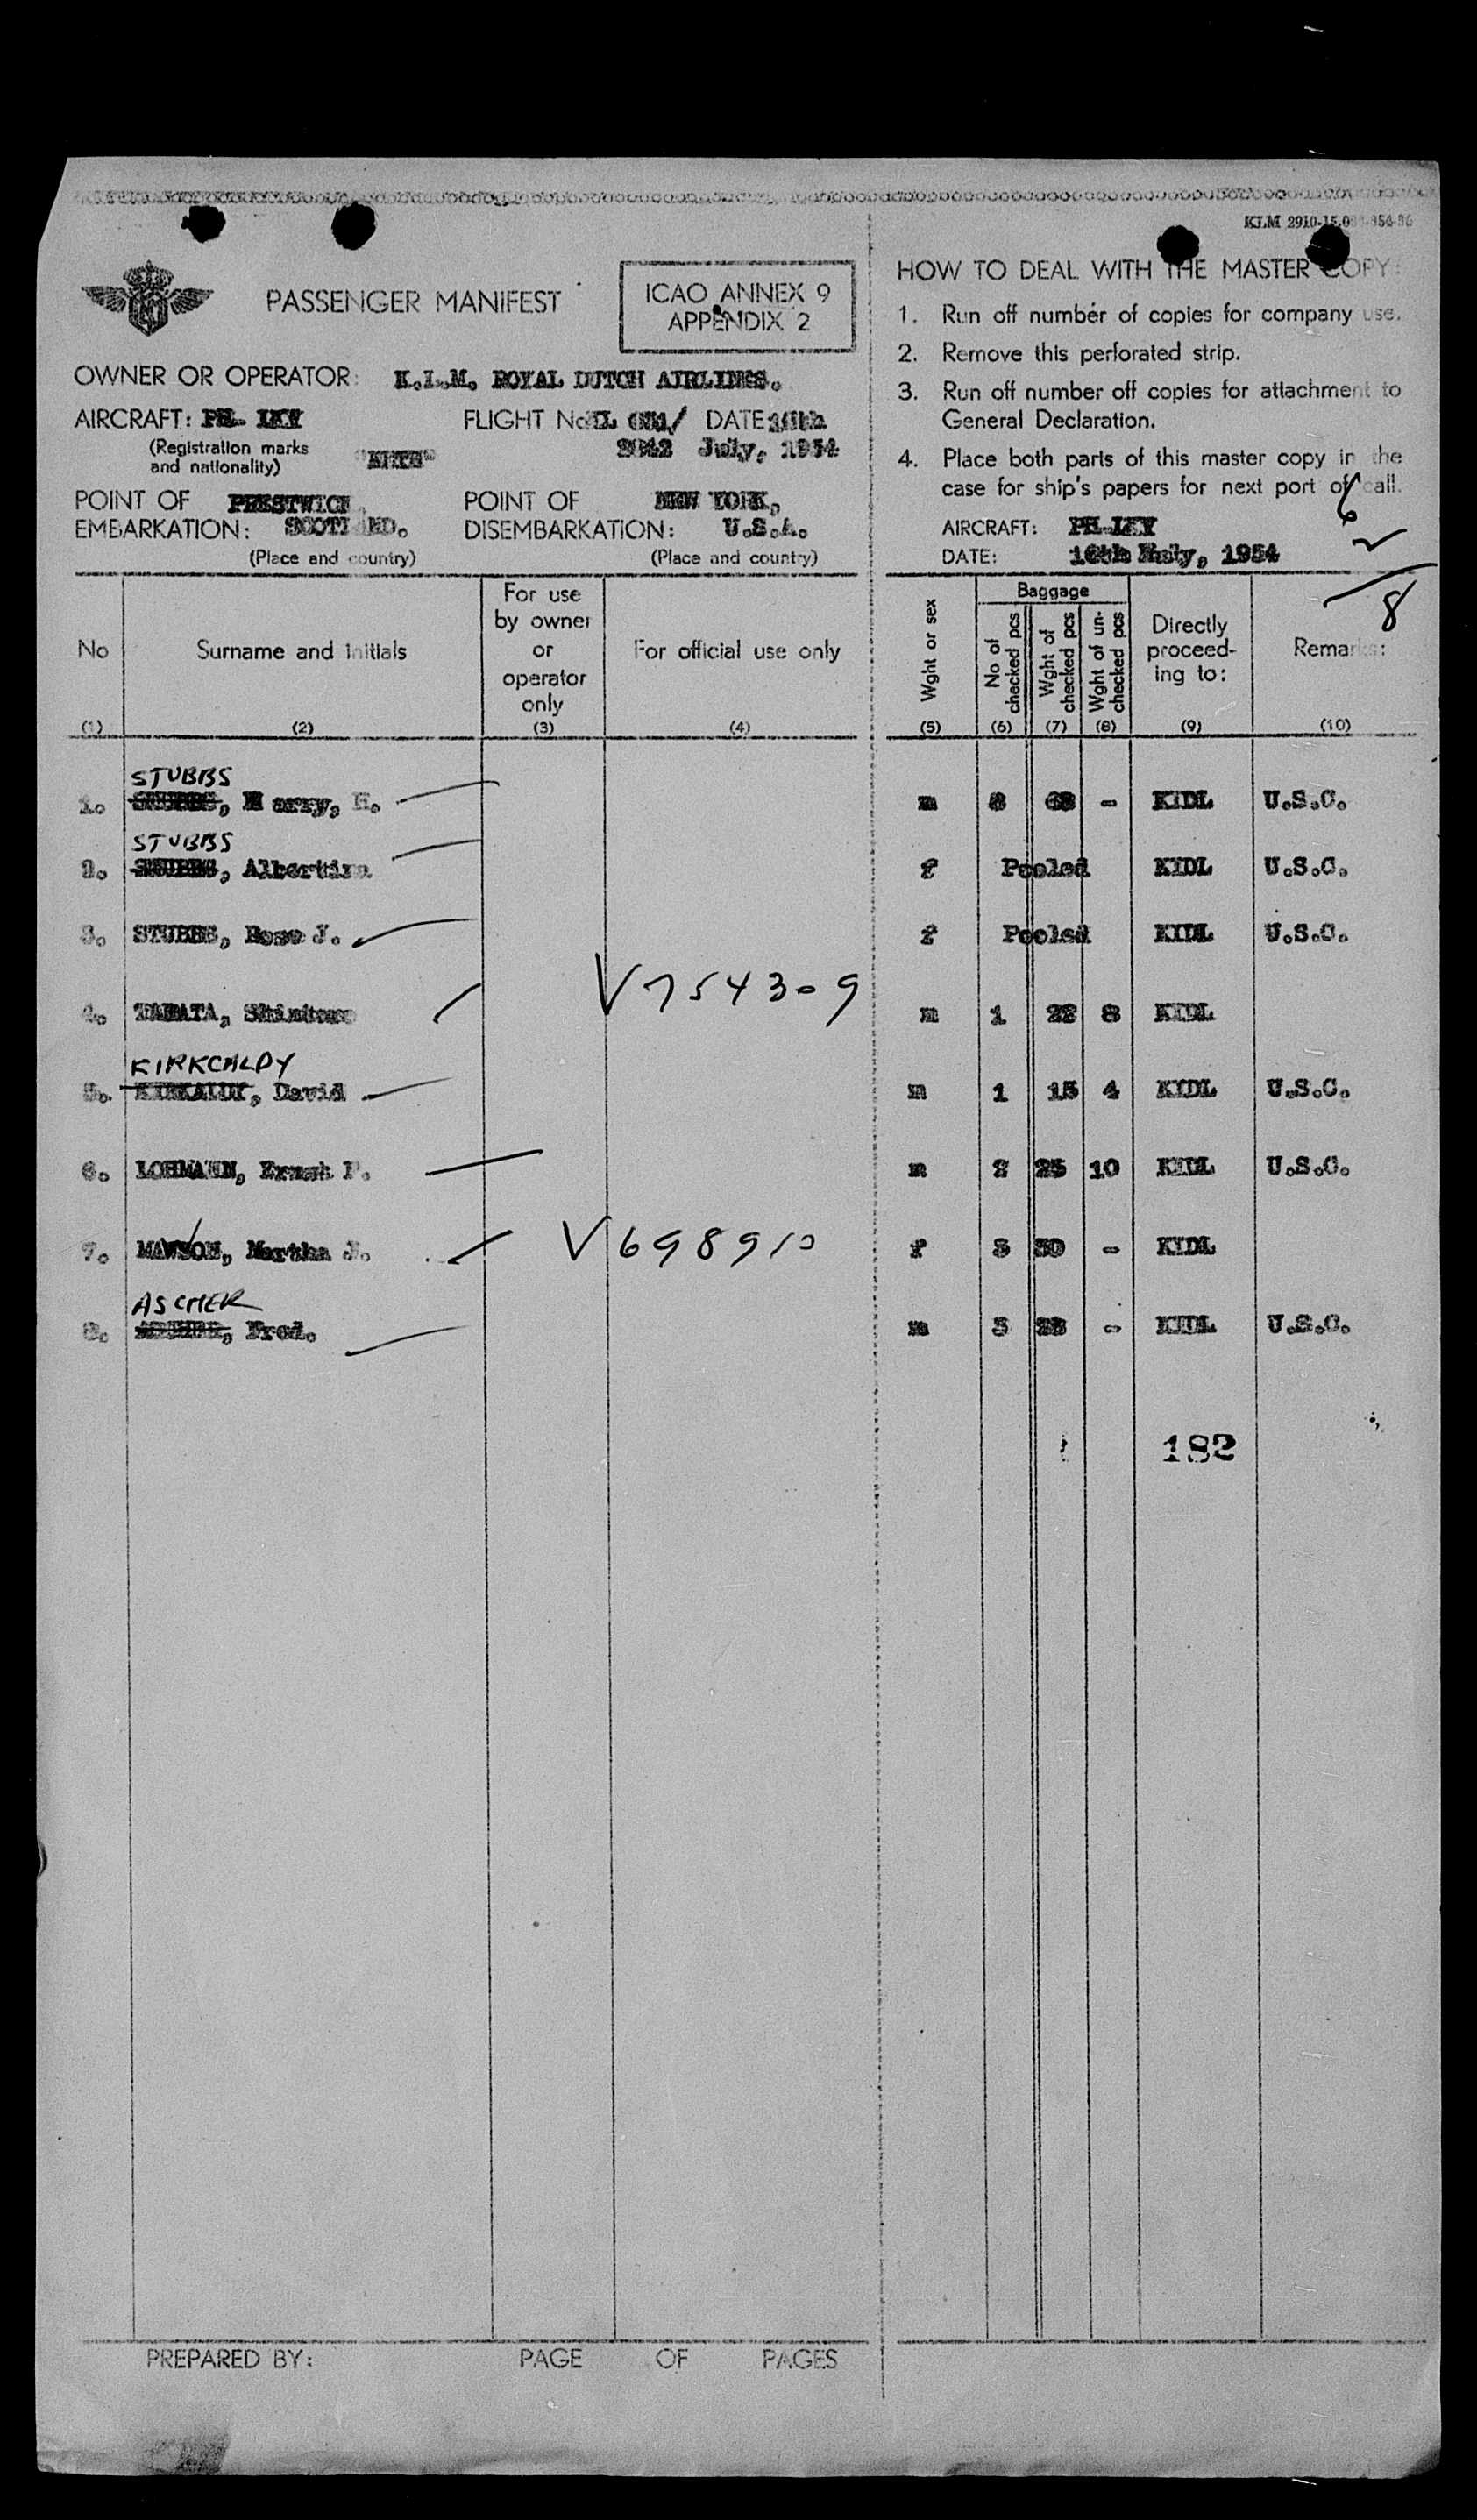 KLM 2910-15.0
PASSENGER MANIFEST
ICAO ANNEX 9
APPENDIX 2
OWNER OR OPERATOR: K.L.M. ROYAL DUTCH AIRLINES.
AIRCRAFT: PH-
(Registration marks
and nationality)
FLIGHT No DATE 16th
July, 1954
POINT OF
EMBARKATION: PRESTWICK
SCOTLAND.
(Place and country)
POINT OF
DISEMBARKATION: NEW YORK,
U.S.A.
(Place and country)
HOW TO DEAL WITH THE MASTER COPY:
1. Run off number of copies for company use.
2. Remove this perforated strip.
3. Run off number off copies for attachment to
General Declaration.
4. Place both parts of this master copy in the
case for ship's papers for next port of call.
AIRCRAFT: PH-
DATE: 16th July, 1954
6
2
8
No
(1)
Surname and initials
(2)
For use
by owner
or
operator
only
(3)
For official use only
(4)
Wght or sex
(5)
Baggage
No of
checked pcs
(6)
Wght of
checked pcs
(7)
Wght of un-
checked pcs
(8)
Directly
proceed-
ing to:
(9)
Remarks:
(10)
STUBBS
1. STUBBS, Harry, H. m 68 - KIDL U.S.C.
STUBBS
2. STUBBS, Albertina f Pooled KIDL U.S.C.
3. STUBBS, Rose J. f Pooled KIDL U.S.C.
4. TABATA, Shintaro V754309 m 1 22 8 KIDL
KIRKCALDY
5. KIRKALDY, David m 1 15 4 KIDL U.S.C.
6. LOHMANN, m 2 25 10 KIDL U.S.C.
7. MAWSON, Martha J. V698910 f 3 30 - KIDL
ASCHER
8. Fred. m 3 - KIDL U.S.C.
182
PREPARED BY: PAGE OF PAGES